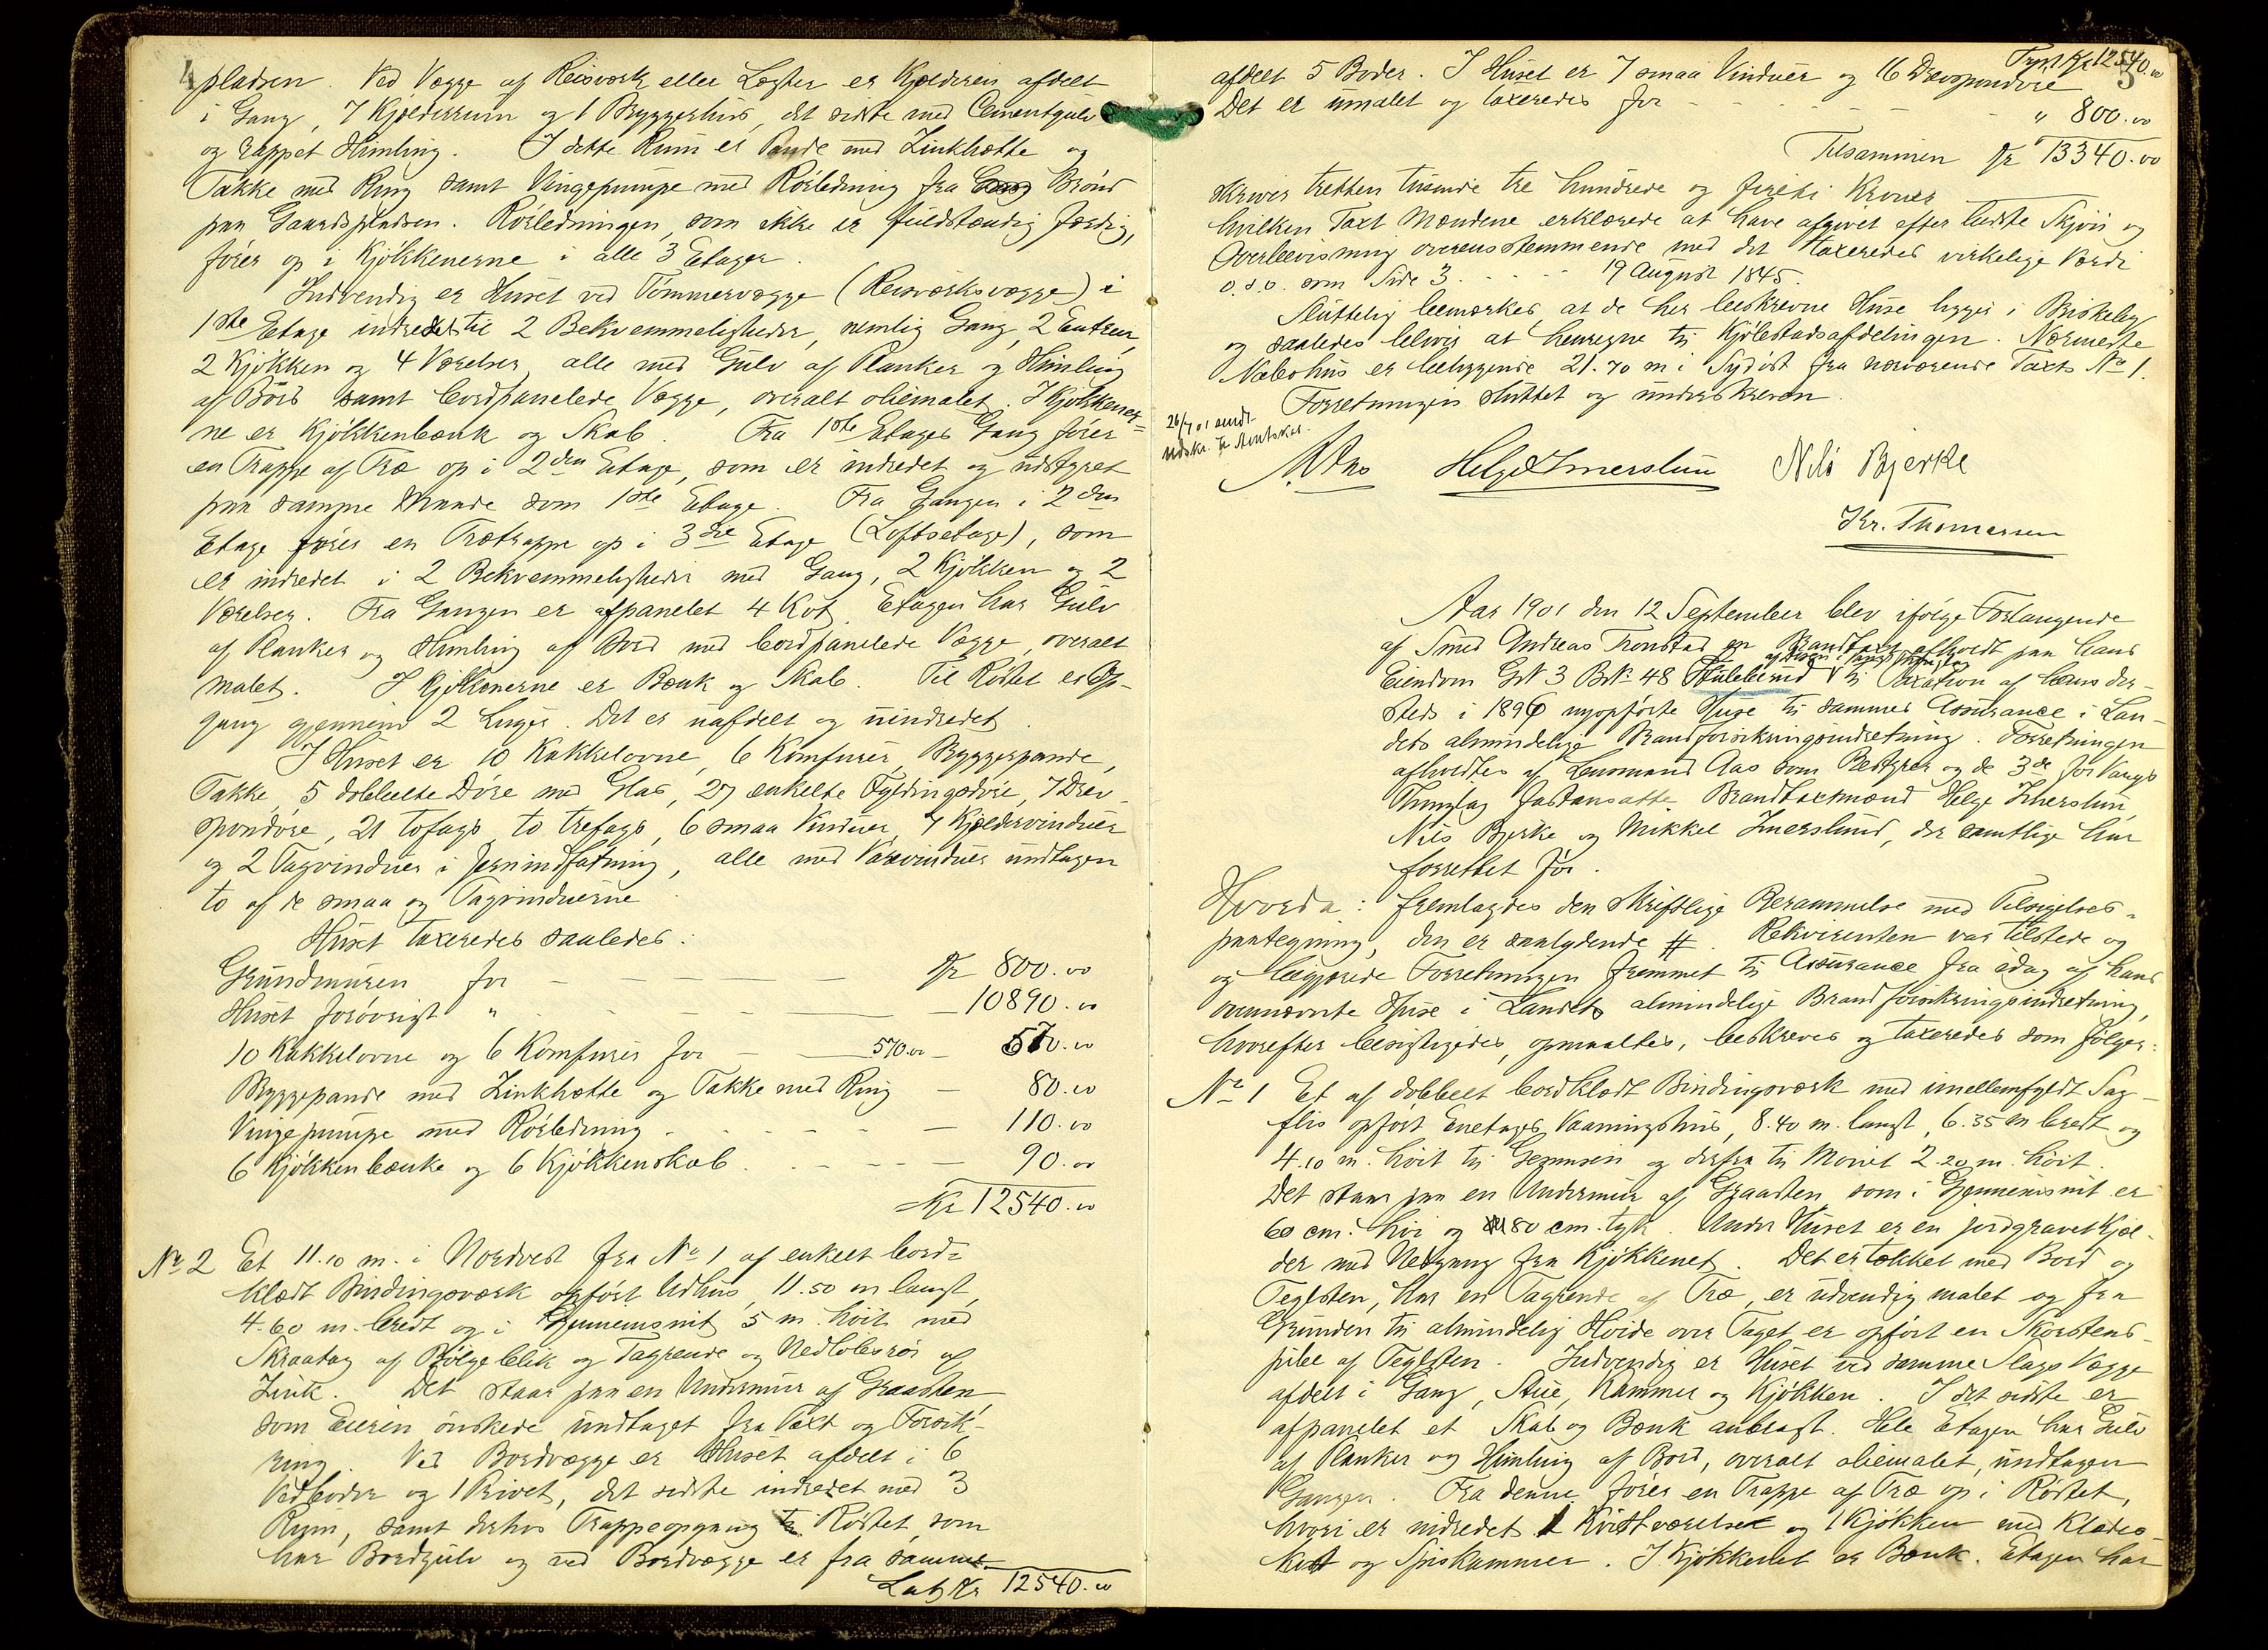 4
pladsen. Ved Vægge af Reisværk eller Lægter er Kjælderen afdelt
i Gang, 7 Kjælderrum og 1 Bryggerhus, det sidste med Cementgulv
og rappet Himling. I dette Rum er Pande med Zinkhætte og
Takke med Ring samt Vingepumpe med Rörledning fra Brönd
paa Gaardspladsen. Rörledningen, som ikke er fuldstændig færdig,
förer op i Kjökkenerne i alle 3 Etager.
Indvendig er Huset ved Tömmervægge (Reisværksvægge) i
1ste Etage indredet til 2 Bekvemmeligheder, nemlig Gang, 2 Entreer,
2 Kjökken og 4 Værelser alle med Gulv af Planker og Himling
af Bord samt bordpanelede Vægge, overalt oliemalet. I Kjökkener=
ne er Kjökkenbænk og Skab. Fra 1ste Etages Gang förer
en Trappe af Træ op i 2den Etage, som er indredet og udstyret
paa samme Maade som 1ste Etage. Fra Gangen i 2den
Etage förer en Trætrappe op i 3die Etage (Loftsetage), som
er indredet i 2 Bekvemmeligheder med Gang, 2 Kjökken og 2
Værelser. Fra Gangen er afpanelet 4 Kot. Etagen har Gulv
af Planker og Himling af Bord med bordpanelede Vægge, overalt
malet. I Kjökkenerne er Bænk og Skab. Til Röstet er Op-
gang gjennem 2 Luger. Det er uafdelt og uindredet.
I Huset er 10 Kakkelovne, 6 Komfurer, Bryggerpande,
Takke, 5 dobbelte Döre med Glas, 27 enkelte Fyldingsdöre, 7 Drev-
spondöre, 21 tofags, to trefags, 6 smaa Vinduer, 7 Kjældervinduer
og 2 Tagvinduer i Jernindfatning, alle med Varevinduer undtagen
to af de smaa og Tagvinduerne.
Huset taxeredes saaledes:
Grundmuren for — — — Kr 800.00
Huset forövrigt " — — — 10890.00
10 Kakkelovne og 6 Komfurer for — 570.00 — 570.00
Bryggepande med Zinkhætte og Takke med Ring — 80.00
Vingepumpe med Rörledning — — — 110.00
6 Kjökkenbænke og 6 Kjökkenskab — — — 90.00
Kr 12540.00
No 2 Et 11.10 m. i Nordvest fra No 1 af enkelt bord=
klædt Bindingsværk opfört Udhus, 11.50 m langt,
4.60 m. bredt og i Gjennemsnit 5 m. höit med
Skraatag af Bölgeblik og Tagrende og Nedlöbsrör af
Zink. Det staar paa en Undermur af Graasten
som Eieren önskede undtaget fra Taxt og Forsik-
ring. Ved Bordvægge er Huset afdelt i 6
Vedboder og 1 Privet, det sidste indredet med 3
Rum, samt derhos Trappeopgang til Röstet, som
har Bordgulv og ved Bordvægge er fra samme
Lats Kr 12540.00
Trpt Kr 12540.00
5
afdelt 5 Boder. I Huset er 7 smaa Vinduer og 16 Drevspondöre
Det er umalet og taxeredes for — — — " 800.00
Tilsammen Kr 13340.00
skriver tretten tusinde tre hundrede og firti Kroner
hvilken Taxt Mændene erklærede at have afgivet efter bedste Skjön og
Overbevisning overensstemmende med det taxeredes virkelige Værdi
o.s.v. som Side 3. - - - - 19 August 1845.
Sluttelig bemærkes, at de her beskrevne Huse ligger i Briskeby
og saaledes bliver at henregne til Kjöbstadsafdelingen. Nærmeste
Nabohus er beliggende 21.70 m i Sydöst fra nærværende Taxts No 1.
Forretningen sluttet og underskreven.
26/7 01 sendt
Udskr. til Amtskas.
A. Aas Helge Imerslun Nils Bjerke
Kr. Thomassen
Aar 1901 den 12 September blev ifölge Forlangende
af Smed Andreas Tronstad en Brandtaxt afholdt paa hans
Eiendom Gr No 3 Br No 48 til Taxation af hans der-
steds i 1896 nyopförte Huse til sammes Assurance i Lan-
dets almindelige Brandforsikringsindretning. Forretningen
afholdtes af Lensmand Aas som Bestyrer og de 3de for Vangs
Thinglag fastansatte Brandtaxtmænd Helge Imerslun,
Nils Bjerke og Mikkel Imerslund, der samtlige har
forrettet för.
Hvorda: fremlagdes den skriftlige Berammelse med Tilsigelses=
paategning, den er saalydende #. Rekvirenten var tilstede og
og begjærede Forretningen fremmet til Assurance fra idag af hans
ovennævnte Huse i Landets almindelige Brandforsikringsindretning,
hvorefter besigtigedes, opmaaltes, beskreves og taxeredes som fölger:
No 1 Et af dobbelt bordklædt Bindingsværk med imellemfyldt Sag-
flis opfört Enetages Vaaningshus, 8.40 m. langt, 6.35 m bredt og
4.10 m. höit til Gesimsen og derfra til Mönet 2.20 m. höit.
Det staar paa en Undermur af Graasten som i Gjennemsnit er
60 cm. höi og 80 cm. tyk. Under Huset er en jordgravet Kjæl-
der med Nedgang fra Kjökkenet. Det er tækket med Bord og
Teglsten, har en Tagrende af Træ, er udvendig malet og fra
Grunden til almindelig Höide over Taget er opfört en Skorstens-
pibe af Teglsten. Indvendig er Huset ved samme Slags Vægge
afdelt i Gang, Stue, Kammer og Kjökken. I det sidste er
afpanelet et Skab og Bænk anbragt. Hele Etagen har Gulv
af Planker og Himling af Bord, overalt oliemalet, undtagen
Gangen. Fra denne förer en Trappe af Træ op i Röstet,
hvori er indredet 1 Kvistværelse og 1 Kjökken med Klædes-
kott og Spiskammer. I Kjökkenet er Bænk. Etagen har